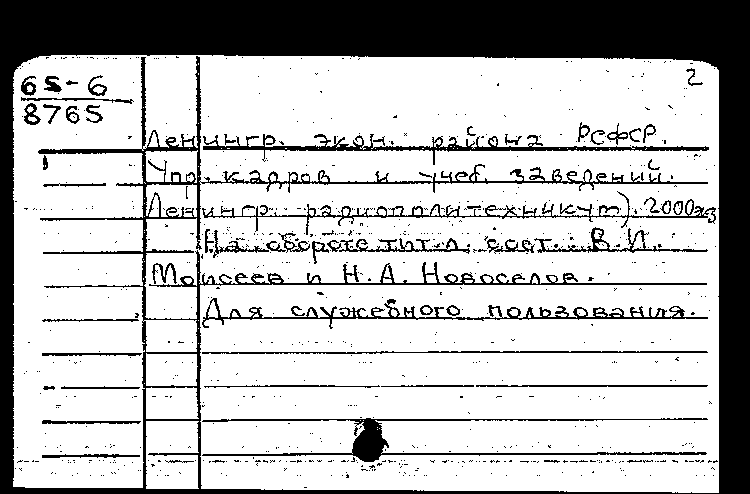 2
65-6
8765
Ленингр. экон. района РСФСР.
Упр. кадров и учеб. заведений.
Ленингр. радиополитехникум). 2000экз
На обороте тит. л. сост.: В. И.
Моисеев и Н. А. Новоселов.
Для служебного пользования.